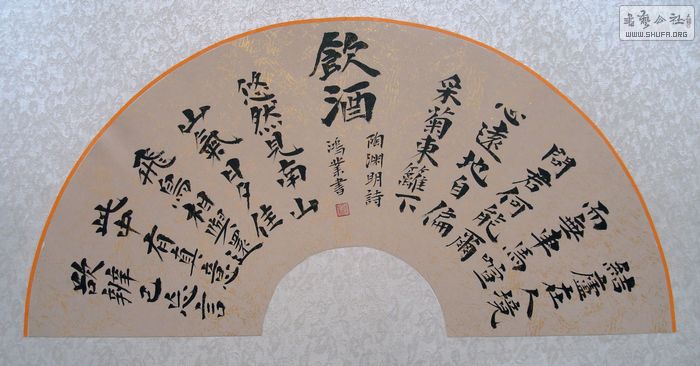 結廬在人境
而無車馬喧
問君何能爾
心遠地自偏
采菊東籬下
飲酒
陶淵明詩
鴻業書
悠然見南山
山氣日夕佳
飛鳥相與還
此中有真意
欲辨已忘言
書藝公社
WWW.SHUFA.ORG